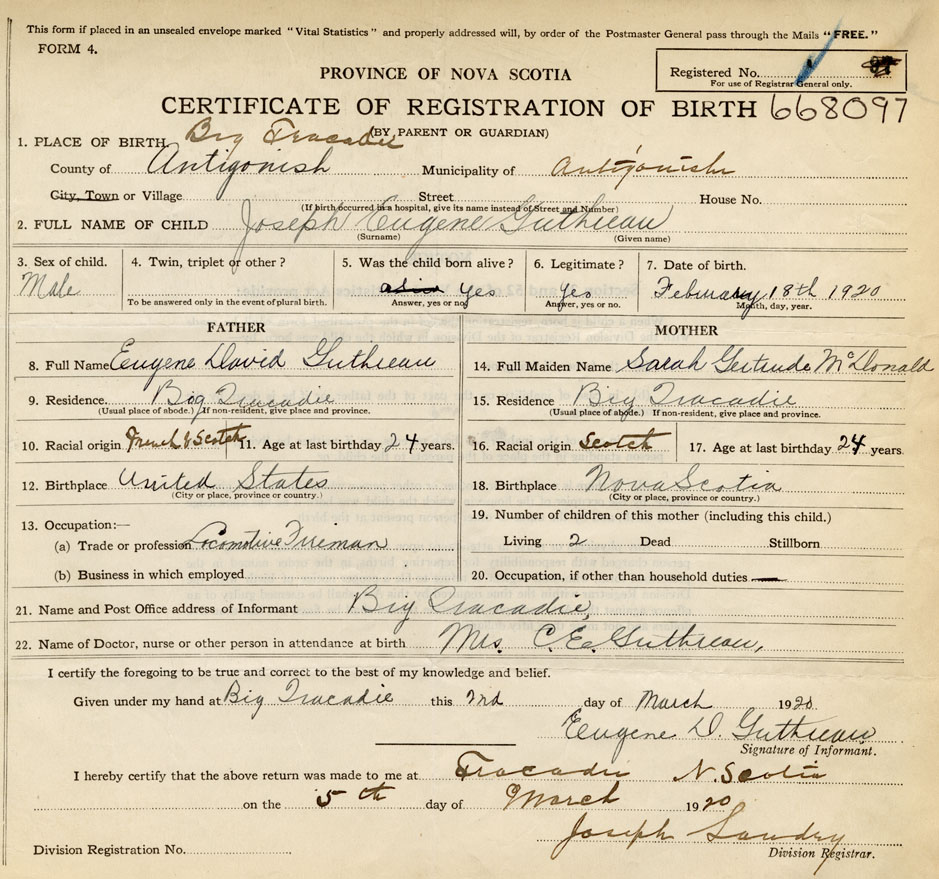 This form if placed in an unsealed envelope marked "Vital Statistics" and properly addressed will, by order of the Postmaster General pass through the Mails "FREE."
FORM 4.
PROVINCE OF NOVA SCOTIA
Registered No.
For use of Registrar General only.
CERTIFICATE OF REGISTRATION OF BIRTH 668097
(BY PARENT OR GUARDIAN)
1. PLACE OF BIRTH Big Tracadie
County of Antigonish Municipality of Antigonish
City, Town or Village Street House No.
(If birth occurred in a hospital, give its name instead of Street and Number)
2. FULL NAME OF CHILD Joseph Eugene Guthreau
(Surname) (Given name)
3. Sex of child. 4. Twin, triplet or other? 5. Was the child born alive? 6. Legitimate? 7. Date of birth.
Male Yes Yes February 18th 1920
To be answered only in the event of plural birth. Answer, yes or no Answer, yes or no. Month, day, year.
FATHER MOTHER
8. Full Name Eugene David Guthreau 14. Full Maiden Name Sarah Gertrude McDonald
9. Residence. Big Tracadie 15. Residence Big Tracadie
(Usual place of abode.) If non-resident, give place and province. (Usual place of abode.) If non-resident, give place and province.
10. Racial origin French & Scotch 11. Age at last birthday 24 years. 16. Racial origin Scotch 17. Age at last birthday 24 years
12. Birthplace United States 18. Birthplace Nova Scotia
(City or place, province or country.) (City or place, province or country.)
13. Occupation:— 19. Number of children of this mother (including this child.)
(a) Trade or profession Locomotive Fireman Living 2 Dead Stillborn
(b) Business in which employed 20. Occupation, if other than household duties —
21. Name and Post Office address of Informant Big Tracadie,
22. Name of Doctor, nurse or other person in attendance at birth Mrs. C. E. Guthreau,
I certify the foregoing to be true and correct to the best of my knowledge and belief.
Given under my hand at Big Tracadie this 2nd day of March 1920
Eugene D. Guthreau
Signature of Informant.
I hereby certify that the above return was made to me at Tracadie N. Scotia
on the 5th day of March 1920
Joseph Landry
Division Registrar.
Division Registration No.